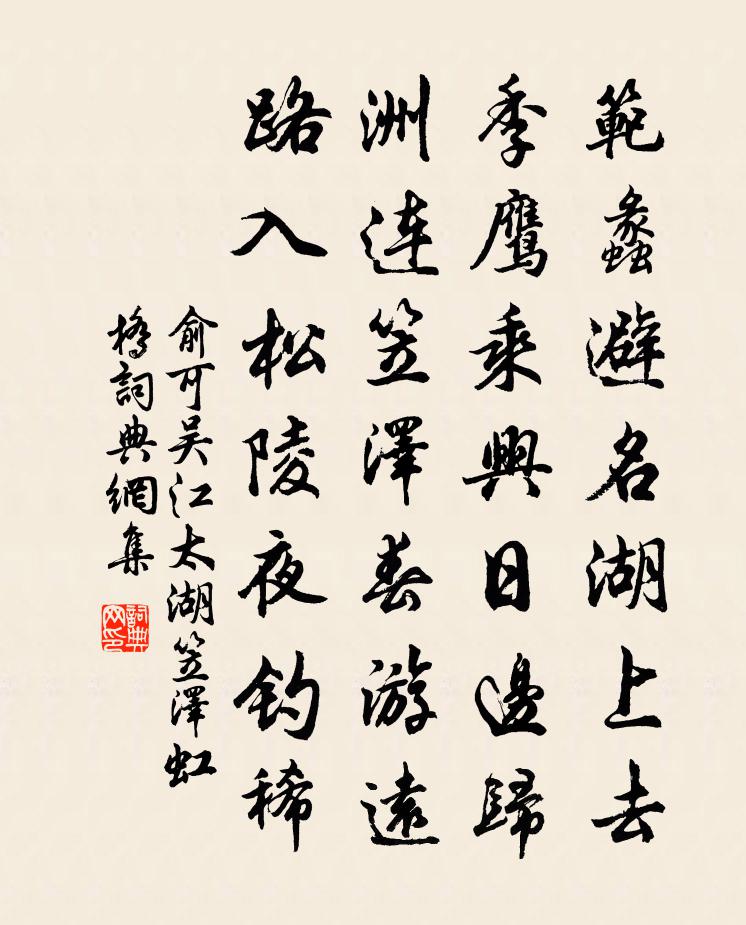 範蠡避名湖上去
季鷹乘興日邊歸
洲連笠澤春游遠
路入松陵夜釣稀
俞可吴江太湖笠澤虹
橋詞典網集
詞典
网印